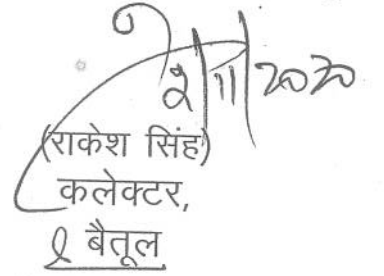 2020
(राकेश सिंह)
कलेक्टर,
बैतूल